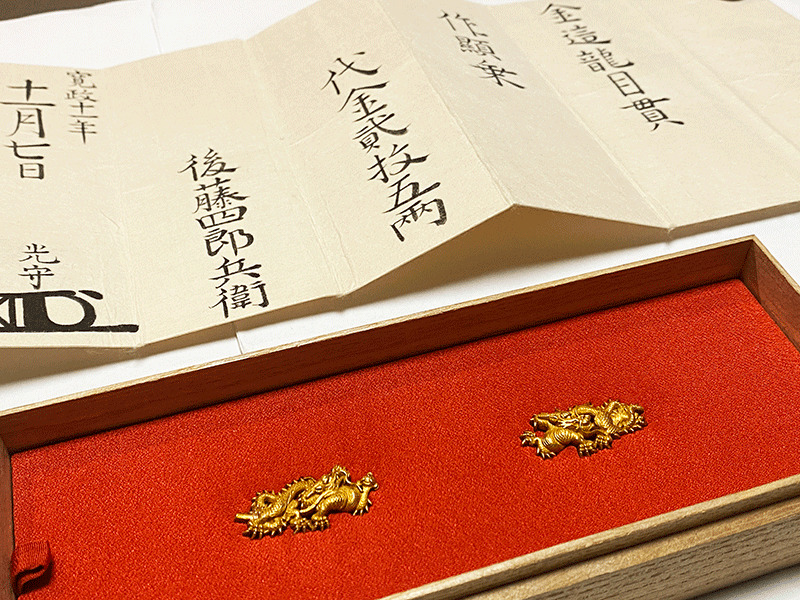 金這龍目貫
作顕乗
代金貳枚五両
後藤四郎兵衛
寛政十一年
十一月七日
光守